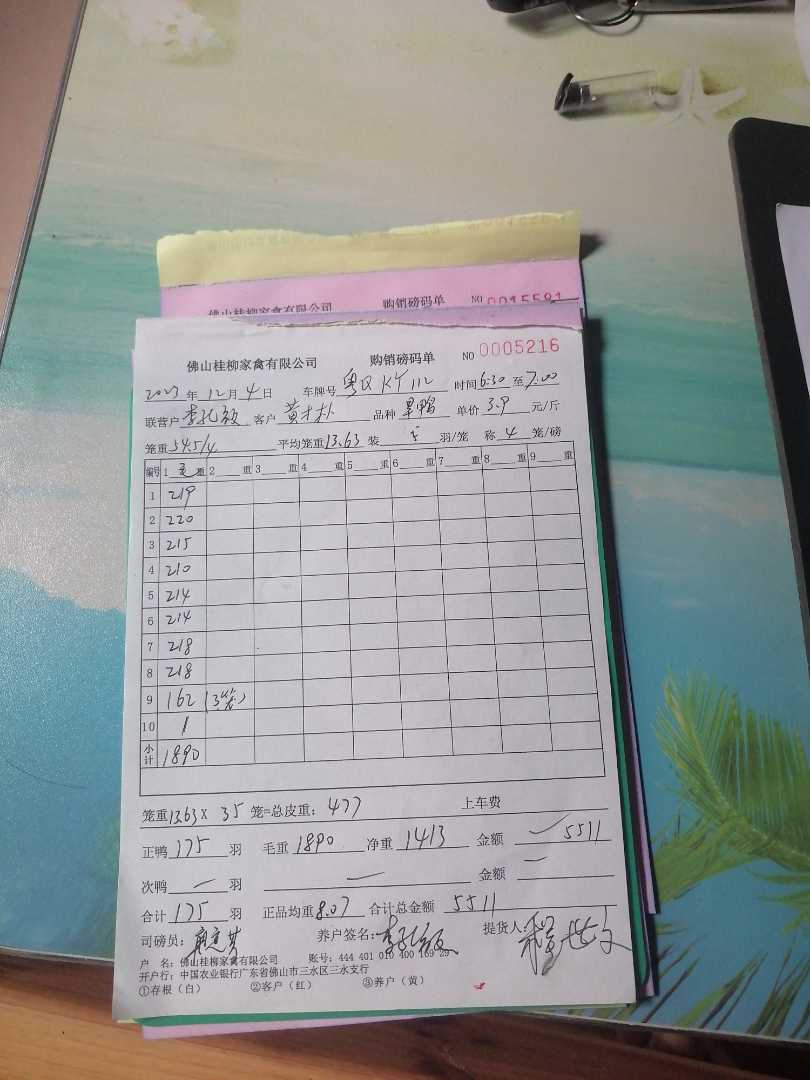 佛山桂柳家禽有限公司 购销磅码单 NO 0015581
佛山桂柳家禽有限公司 购销磅码单 NO 0005216
2023 年 12 月 4 日 车牌号 粤Q KY112 时间 6:30 至 7:00
联营户 李孔毅 客户 黄才朴 品种 单价 3.9 元/斤
笼重 54.5/4 平均笼重 13.63 装 5 羽/笼 称 4 笼/磅
编号 1 毛 重 2 重 3 重 4 重 5 重 6 重 7 重 8 重 9 重
1 219
2 220
3 215
4 210
5 214
6 214
7 218
8 218
9 162 (3笼)
10
小计 1890
笼重 13.63 X 35 笼=总皮重: 477 上车费
正鸭 175 羽 毛重 1890 净重 1413 金额 5511
次鸭 — 羽 — 金额 —
合计 175 羽 正品均重 8.07 合计总金额 5511
司磅员: 养户签名: 李孔毅 提货人:
户 名: 佛山桂柳家禽有限公司 账号: 444 401 010 400 169 29
开户行: 中国农业银行广东省佛山市三水区三水支行
①存根(白) ②客户(红) ③养户(黄)